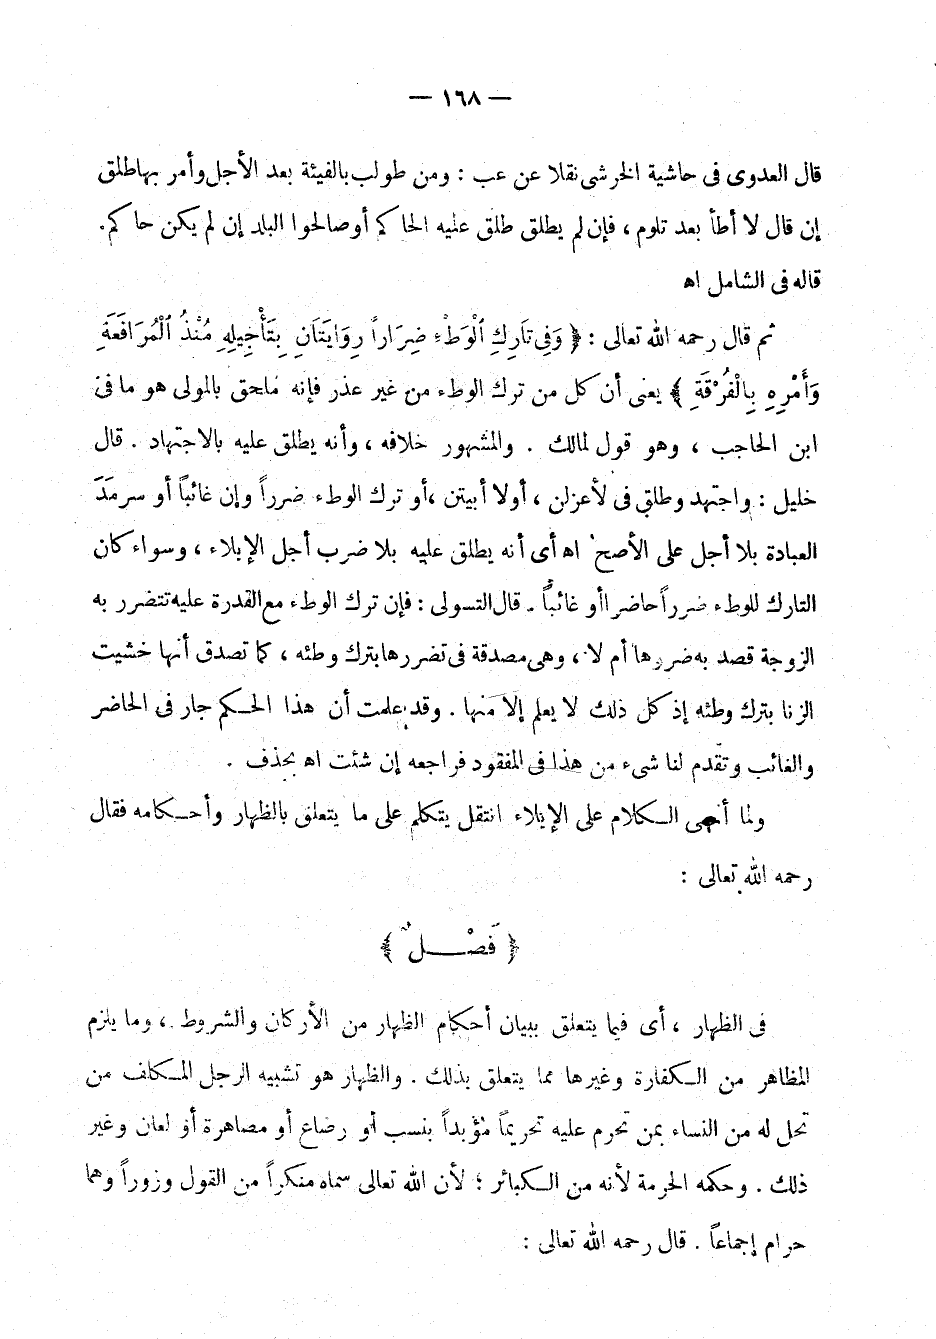 — ١٦٨ —
قال العدوى فى حاشية الخرشى نقلا عن عب : ومن طولب بالفيئة بعد الأجل وأمر بها طلق
إن قال لا أطأ بعد تلوم ، فإن لم يطلق طلق عليه الحاكم أو صالحوا البلد إن لم يكن حاكم .
قاله فى الشامل اه
ثم قال رحمه الله تعالى : ﴿ وَفِى تَارِكِ ٱلْوَطْءِ ضِرَاراً رِوَايَتَانِ بِتَأْجِيلِهِ مُنْذُ ٱلْمُرَافَعَةِ
وَأَمْرِهِ بِالْفُرْقَةِ ﴾ يعنى أن كل من ترك الوطء من غير عذر فإنه ملحق بالمولى هو ما فى
ابن الحاجب ، وهو قول لمالك . والمشهور خلافه ، وأنه يطلق عليه بالاجتهاد . قال
خليل : واجتهد وطلق فى لأعزلن ، أو لا أبيتن ، أو ترك الوطء ضرراً وإن غائباً أو سرمَدَ
العبادة بلا أجل على الأصح اه أى أنه يطلق عليه بلا ضرب أجل الإيلاء ، وسواء كان
التارك للوطء ضرراً حاضراً أو غائباً . قال التسولى : فإن ترك الوطء مع القدرة عليه تتضرر به
الزوجة قصد به ضررها أم لا ، وهى مصدقة فى تضررها بترك وطئه ، كما تصدق أنها خشيت
الزنا بترك وطئه إذ كل ذلك لا يعلم إلا منها . وقد علمت أن هذا الحكم جار فى الحاضر
والغائب وتقدم لنا شىء من هذا فى المفقود فراجعه إن شئت اه بحذف .
ولما أنهى الكلام على الإيلاء انتقل يتكلم على ما يتعلق بالظهار وأحكامه فقال
رحمه الله تعالى :
﴿ فَصْلٌ ﴾
فى الظهار ، أى فيما يتعلق ببيان أحكام الظهار من الأركان والشروط ، وما يلزم
المظاهر من الكفارة وغيرها مما يتعلق بذلك . والظهار هو تشبيه الرجل المكلف من
تحل له من النساء بمن تحرم عليه تحريماً مؤبداً بنسب أو رضاع أو مصاهرة أو لعان وغير
ذلك . وحكمه الحرمة لأنه من الكبائر ؛ لأن الله تعالى سماه منكراً من القول وزوراً وهما
حرام إجماعاً . قال رحمه الله تعالى :